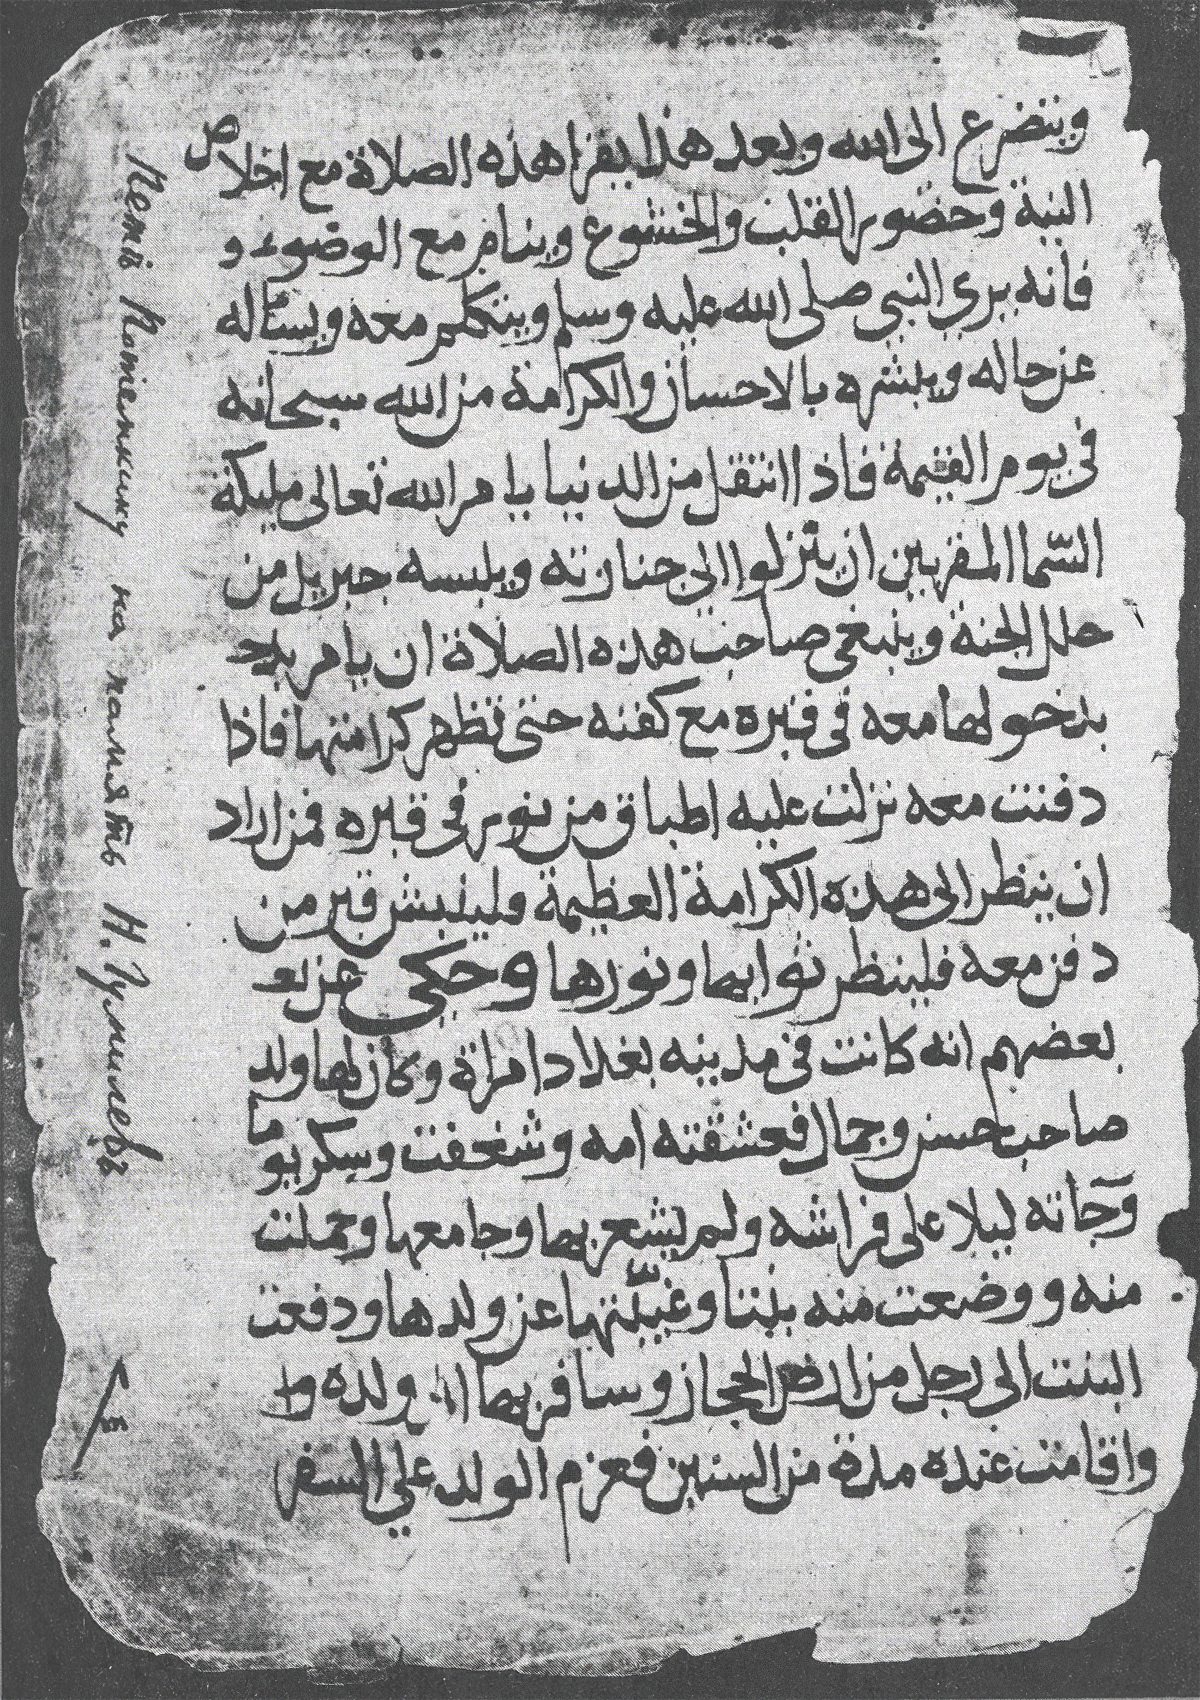 ويتضرع الى الله وبعد هذا يقرا هذه الصلاة مع اخلاص
النية وحضور القلب والخشوع وينام مع الوضوء و
فانه يرى النبي صلى الله عليه وسلم ويتكلم معه ويسأله
عن حاله ويبشره بالاحسان والكرامة من الله سبحانه
في يوم القيمة فاذا انتقل من الدنيا يامر الله تعالى مليكة
السّما المقربين ان ينزلوا الى جنازته ويلبسه جبريل من
حلل الجنة وينبغي صاحب هذه الصلاة ان يامر
بدخولها معه في قبره مع كفنه حتى تظهر كرامتها فاذا
دفنت معه نزلت عليه اطباق من نور في قبره فمن اراد
ان ينظر الى هذه الكرامة العظيمة فلينبش قبر من
دفن معه فلينظر ثوابها ونورها وحكي عن بعـ
بعضهم انه كانت في مدينه بغداد امراة وكان لها ولد
صاحب حسن وجمال فعشقته امه وشغفت وسكر يوما
وجاته ليلا على فراشه ولم يشعر بها وجامعها وحملت
منه و ووضعت منه بنتا وغيبّتها عن ولدها ودفعت
البنت الى رجل من ارض الحجاز وسافر بها ولده
واقامت عنده مدة من السنين فعزم الولد على السفر
Петѣ Потѣнницу на память Н. Гумилевъ